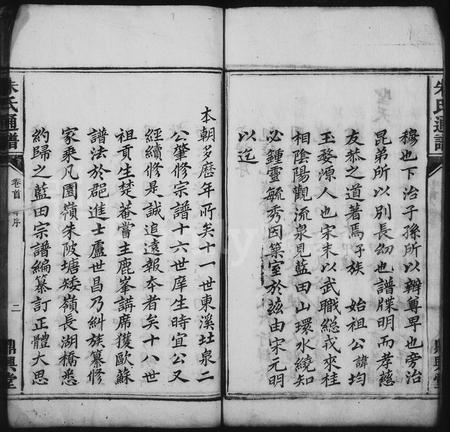 朱氏通譜
穆也下治子孫所以辧尊卑也旁治
昆弟所以別長幼也譜牒明而孝慈
友恭之道著焉子族 始祖公諱均
玉婺源人也宋末以武職總戎來桂
相陰陽觀流泉見藍田山環水繞知
必鍾靈毓秀因築室於兹由宋元明
以迄
鼎興堂
本朝多歷年所矣十一世東溪壯泉二
公肇修宗譜十六世庠生時宜公又
經續修是誠追遠報本者矣十八世
祖貢生焚菴嘗主鹿峯講席獲歐蘇
譜法於郡進士盧世昌乃糾族纂修
家乘凡園嶺朱陂塘矮嶺長湖橋悉
約歸之藍田宗譜編纂訂正體大思
朱氏通譜
卷首
序
二
鼎興堂